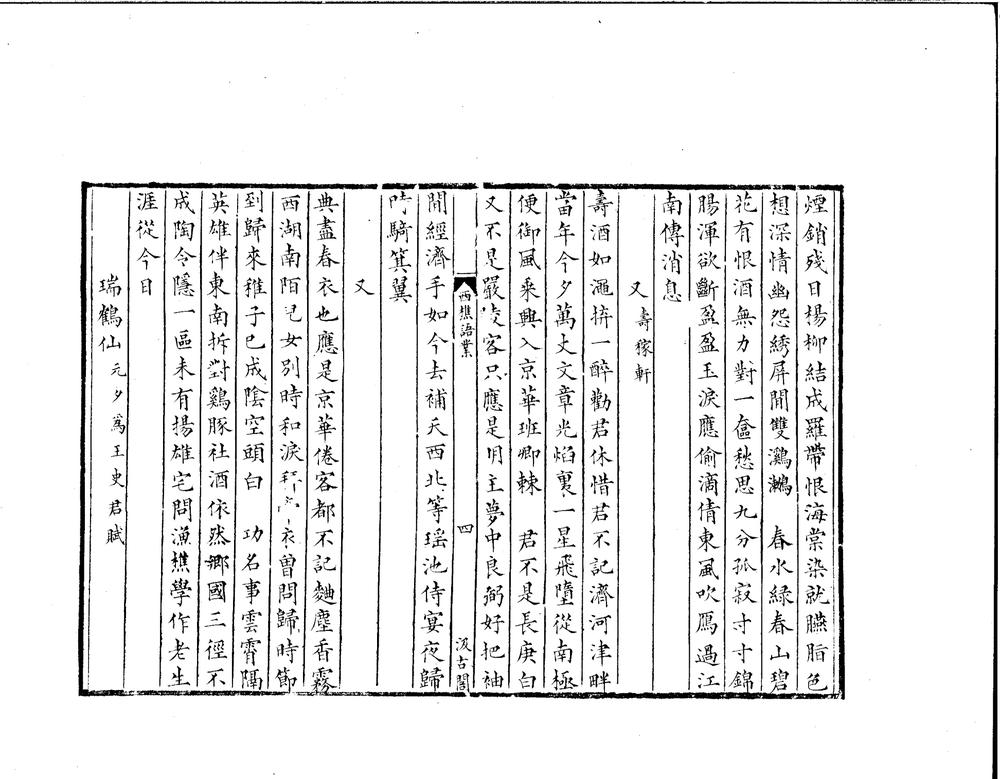 煙銷殘日楊柳結成羅帶恨海棠染就臙脂色
想深情幽怨綉屏閒雙鸂鶒　春水綠春山碧
花有恨酒無力對一奩愁思九分孤寂寸寸錦
腸渾欲斷盈盈玉淚應偷滴倩東風吹鴈過江
南傳消息
又壽稼軒
壽酒如澠拚一醉勸君休惜君不記濟河津畔
當年今夕萬丈文章光焰裏一星飛墮從南極
便御風乘興入京華班卿棘　君不是長庚白
又不是嚴陵客只應是明主夢中良弼好把袖
西樵語業　四　汲古閣
閒經濟手如今去補天西北等瑤池侍宴夜歸
時騎箕翼
又
典盡春衣也應是京華倦客都不記麯塵香霧
西湖南陌兒女別時和淚拜衣曾問歸時節
到歸來稚子已成陰空頭白　功名事雲霄隔
英雄伴東南拆對鷄豚社酒依然鄉國三徑不
成陶令隱一區未有揚雄宅問漁樵學作老生
涯從今日
瑞鶴仙元夕為王史君賦